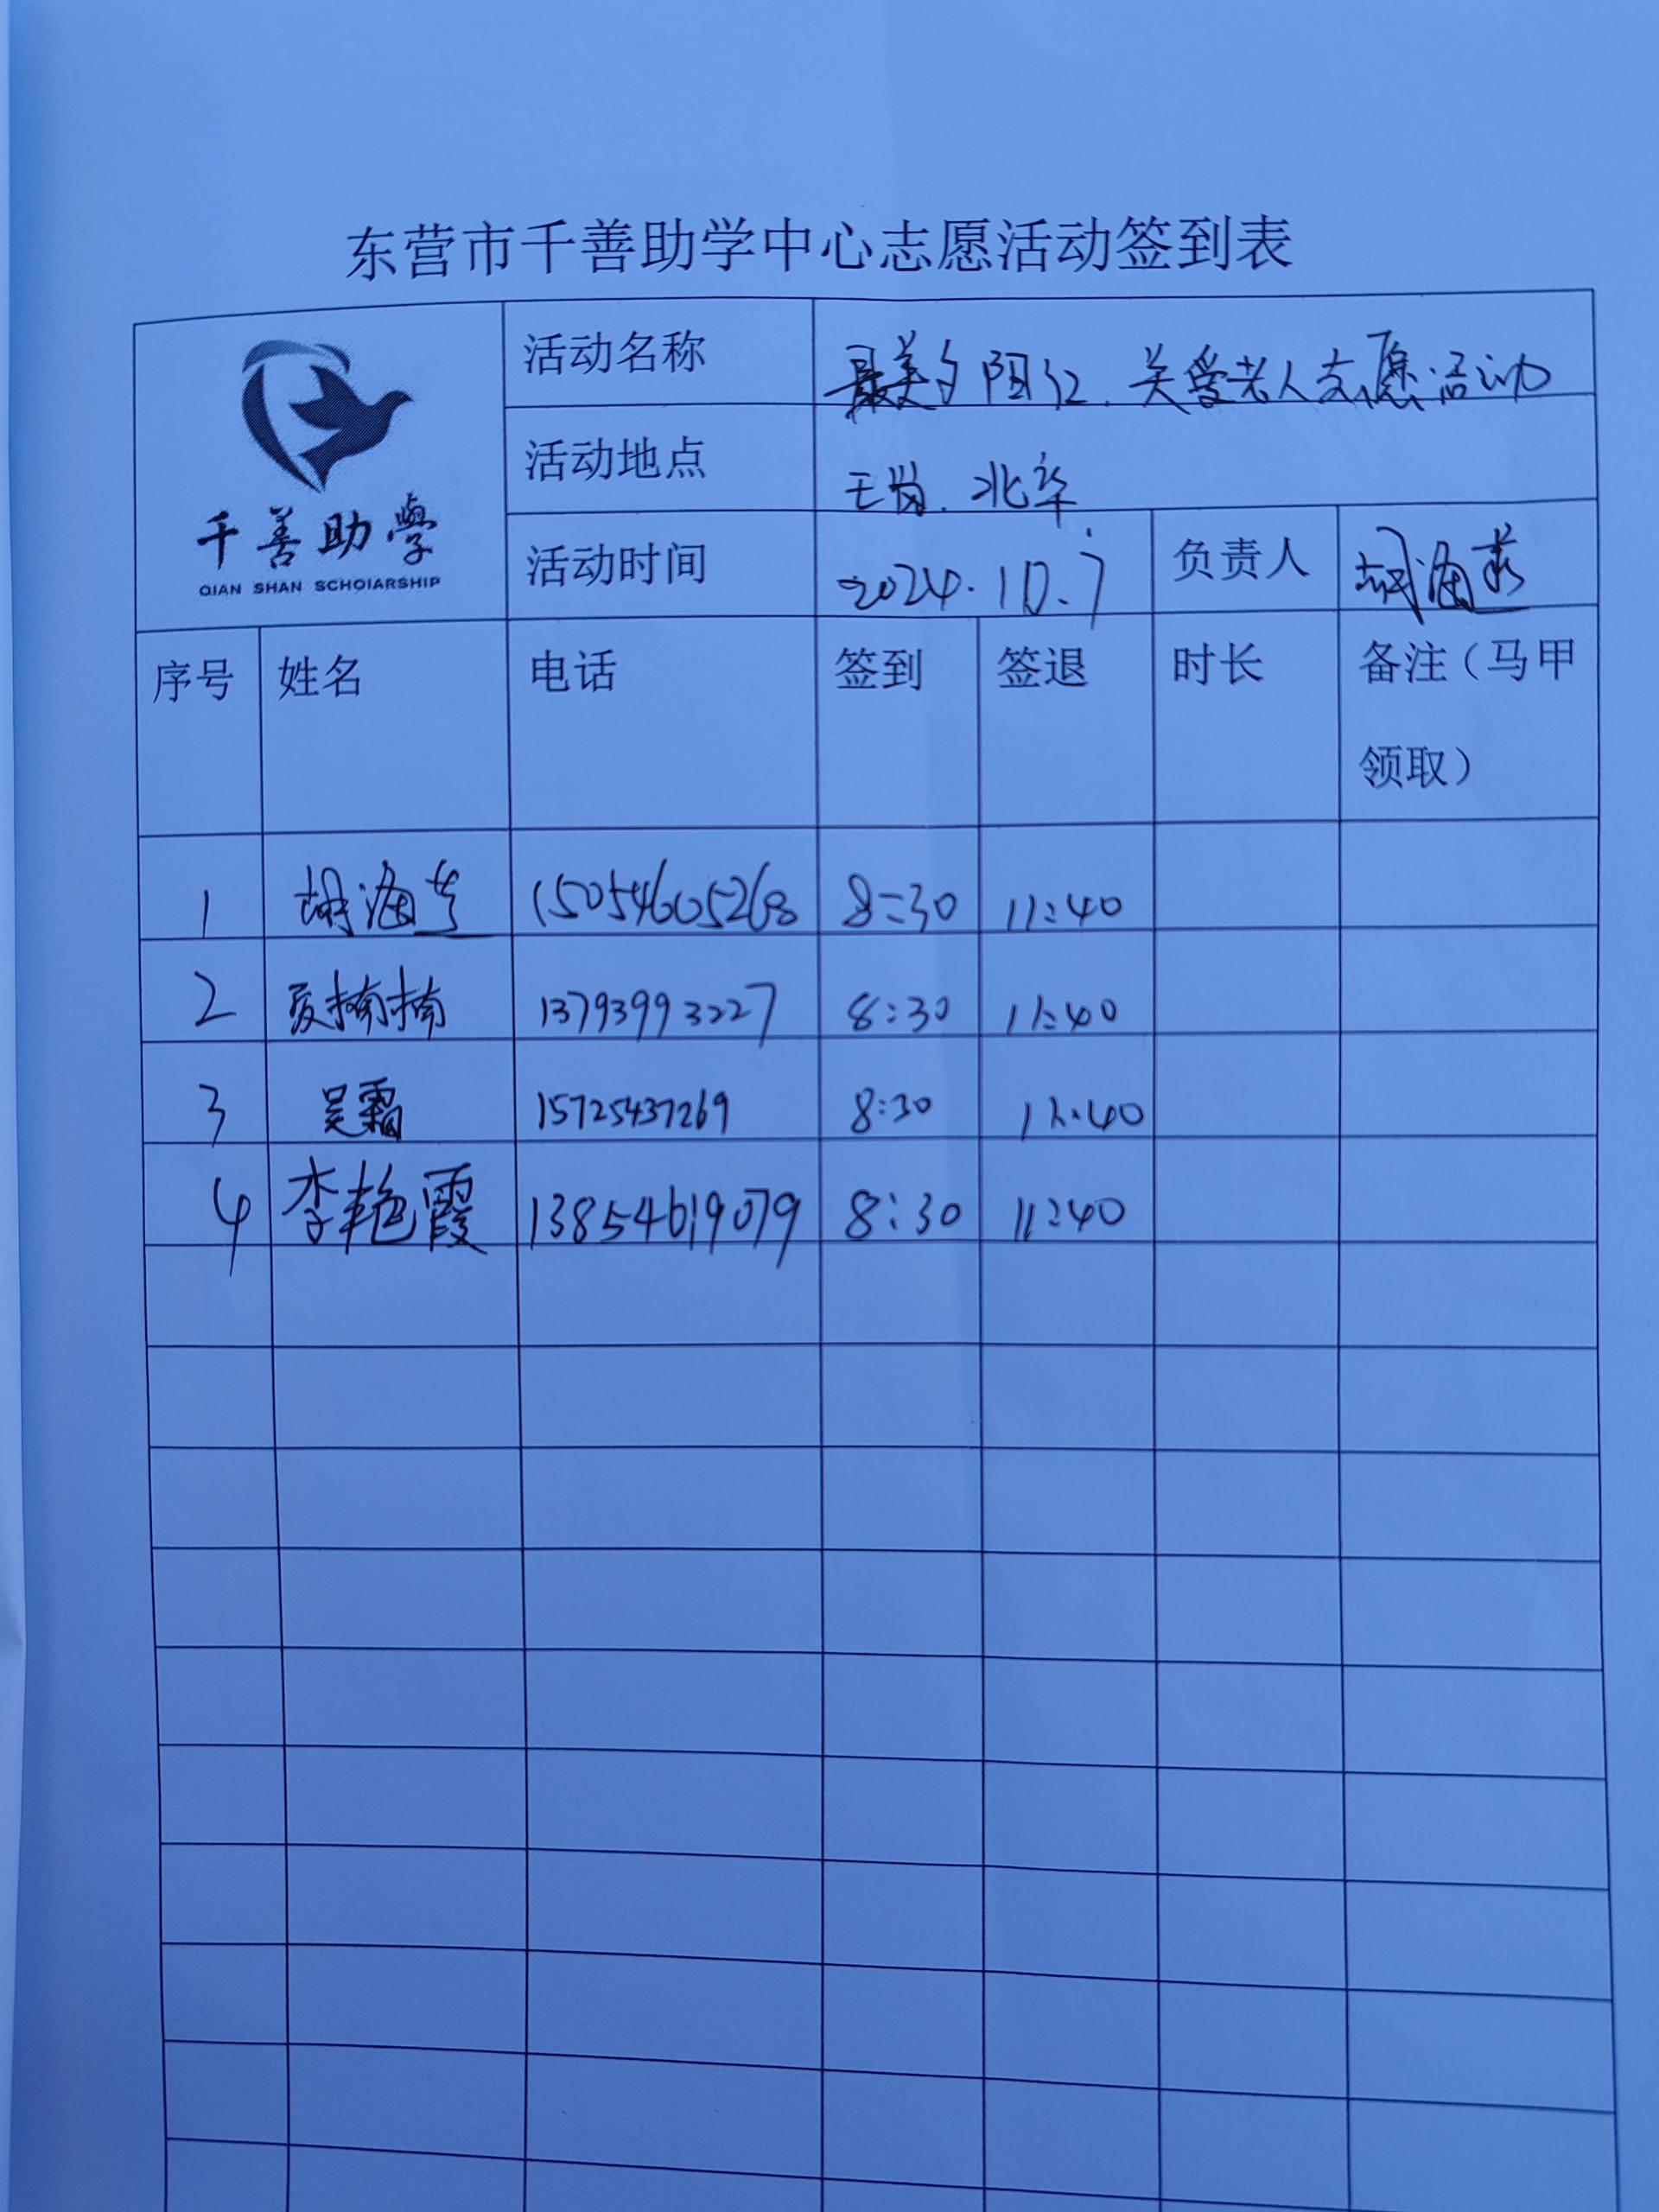 东营市千善助学中心志愿活动签到表
千善助學
QIAN SHAN SCHOIARSHIP
活动名称 最美夕阳红、关爱老人志愿活动
活动地点 王岗、北华
活动时间 2024.10.7 负责人 胡海燕
序号 姓名 电话 签到 签退 时长 备注（马甲
领取）
1 胡海燕 15054605268 8:30 11:40
2 楠楠 13793993227 8:30 11:40
3 吴霜 15725437269 8:30 11:40
4 李艳霞 13854619079 8:30 11:40